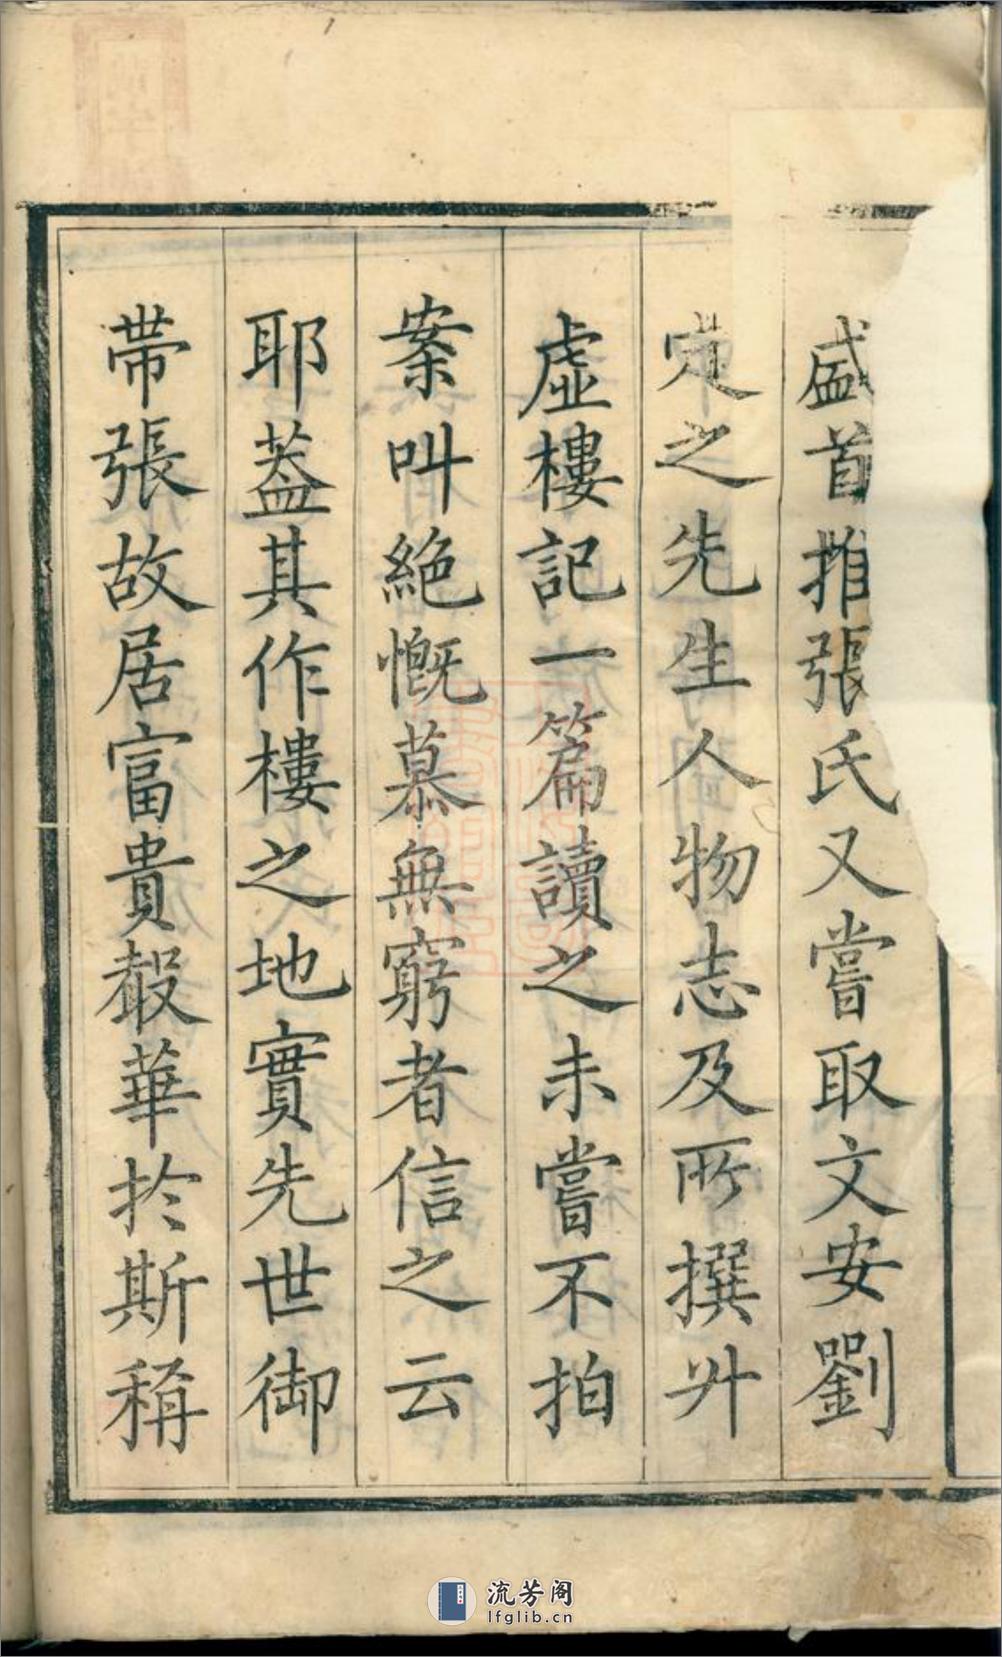 盛首推張氏又嘗取文安劉
定之先生人物志及所撰升
虛樓記一篇讀之未嘗不拍
案叫絕慨慕無窮者信之云
耶葢其作樓之地實先世御
帶張故居富貴縠華於斯稱
流芳阁
lfglib.cn